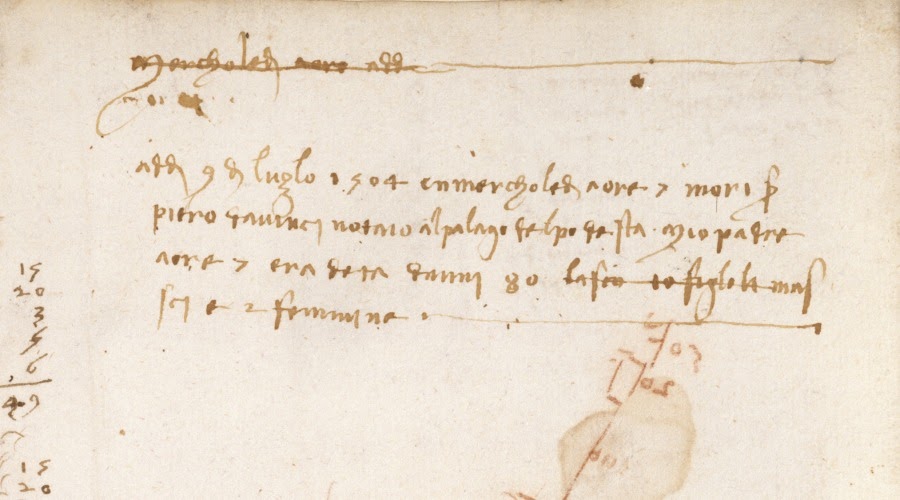 mercholedj aore add
addj 9 dj luglo 1504 in mercholedj aore 7 mori ṣ
piero davinci notaio alpalago del podessta mio padre
aore 7 era deta danni 80 lascio 10 figloli mas
scj e 2 femmine
15
20
3
5
6
49
15
20